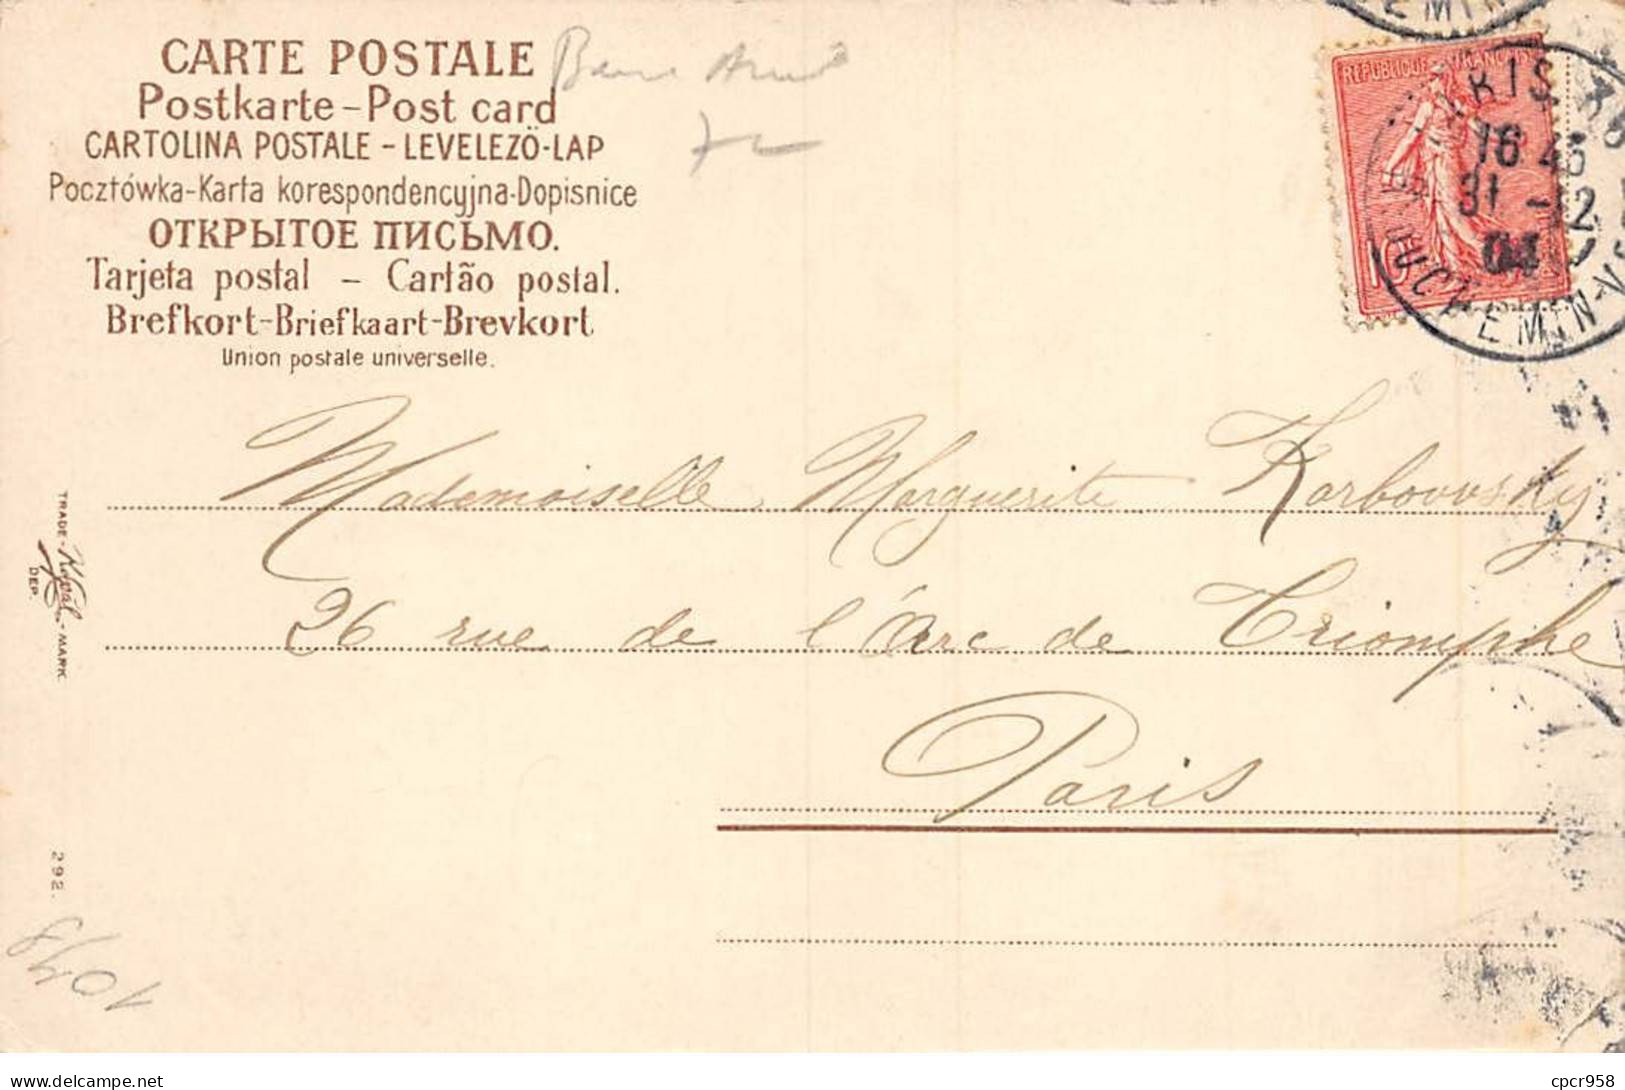 CARTE POSTALE
Postkarte - Post card
CARTOLINA POSTALE - LEVELEZÖ-LAP
Pocztówka-Karta korespondencyjna-Dopisnice
ОТКРЫТОЕ ПИСЬМО.
Tarjeta postal - Cartão postal.
Brefkort-Briefkaart-Brevkort
Union postale universelle.
REPUBLIQUE FRANÇAISE
10
16 45
31 -12
04
Mademoiselle Marguerite Karbowsky
26 rue de l'Arc de Triomphe
Paris
TRADE - MARK
DEP.
292.
1048
delcampe.net
cpcr958